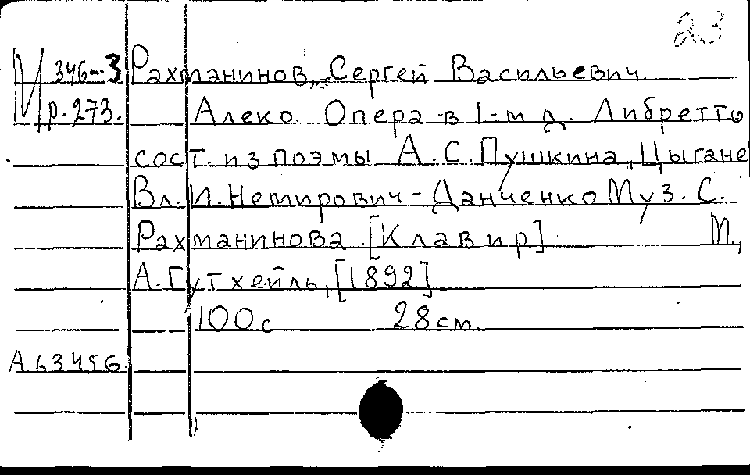 23
И 346-3 Рахманинов, Сергей Васильевич
р.273. Алеко. Опера в 1-м д. Либретто
сост. из поэмы А.С.Пушкина „Цыгане
Вл.И.Немирович-Данченко Муз. С.
Рахманинова [Клавир] М.,
А.Гутхейль, [1892]
100с 28см.